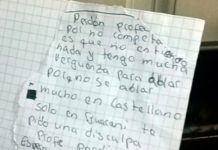 Perdón profe
Por no completa
es que no entiendo
nada y tengo mucha
verguenza para ablar
porque no se ablar
mucho en Castellano
solo en Guarani. te
pido una disculpa
Profe perdon